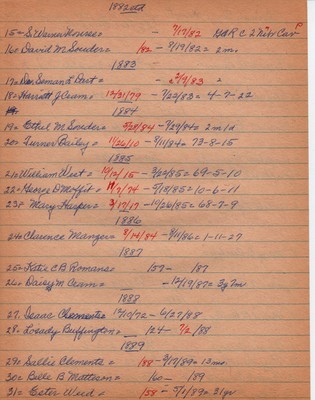 1882
15= S. Warner - 7/17/82 GAR C 2 Cav
16= David M. Souder= 82 - 9/19/82 = 2 m.
1883
17= - 2/9/83
18= Harriott J. Ceam= 12/31/79 - 7/22/83 = 4-7-22
1884
19= Ethel M. Souder= /84 - 9/29/84= 2m 1d
20= Turner Bailey= 11/26/10 - 8/11/84= 73-8-15
1885
21= William West= 10/12/15 - 3/22/85= 69-5-10
22= George D Moffit= 11/7/74 - 5/13/85= 10-6-11
23= Mary Harper= 3/17/17 - 11/26/85= 68-7-9
1886
24= Clarence Manger= 9/14/84 - 9/11/86= 1-11-27
1887
25= Katie C B Romans= 157- 187
26= Daisy M. Ceam= - 12/19/87= 3y 7m
1888
27= Isaac Clements= 12/10/72 - 4/27/88
28= Lorady Buffington= 124 - 7/2/88
1889
29= Sallie Clements= 188 - 3/17/89= 13 mo.
30= Belle B Matteson= 160 - 189
31= Ester Weed= 158 - 5/1/89= 31 yr